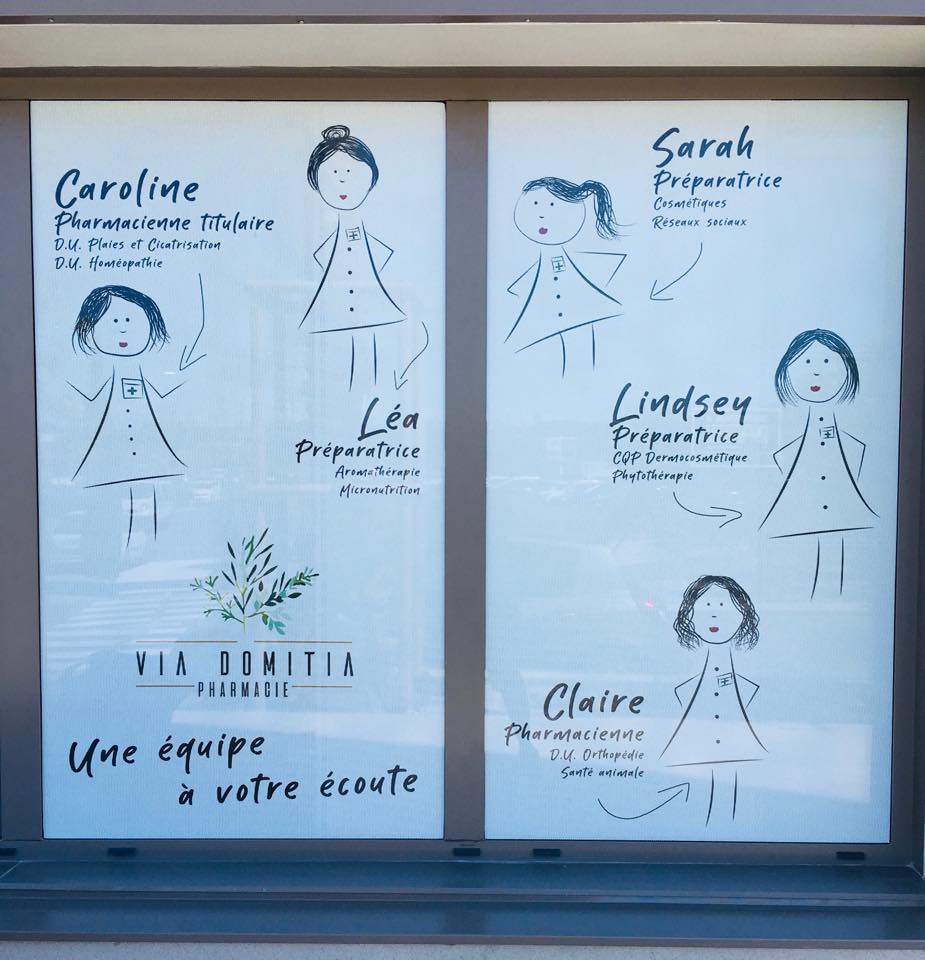 Caroline
Pharmacienne titulaire
D.U. Plaies et Cicatrisation
D.U. Homéopathie
Léa
Préparatrice
Aromathérapie
Micronutrition
VIA DOMITIA
PHARMACIE
Une équipe
à votre écoute
Sarah
Préparatrice
Cosmétiques
Réseaux sociaux
Lindsey
Préparatrice
CQP Dermocosmétique
Phytothérapie
Claire
Pharmacienne
D.U. Orthopédie
Santé animale